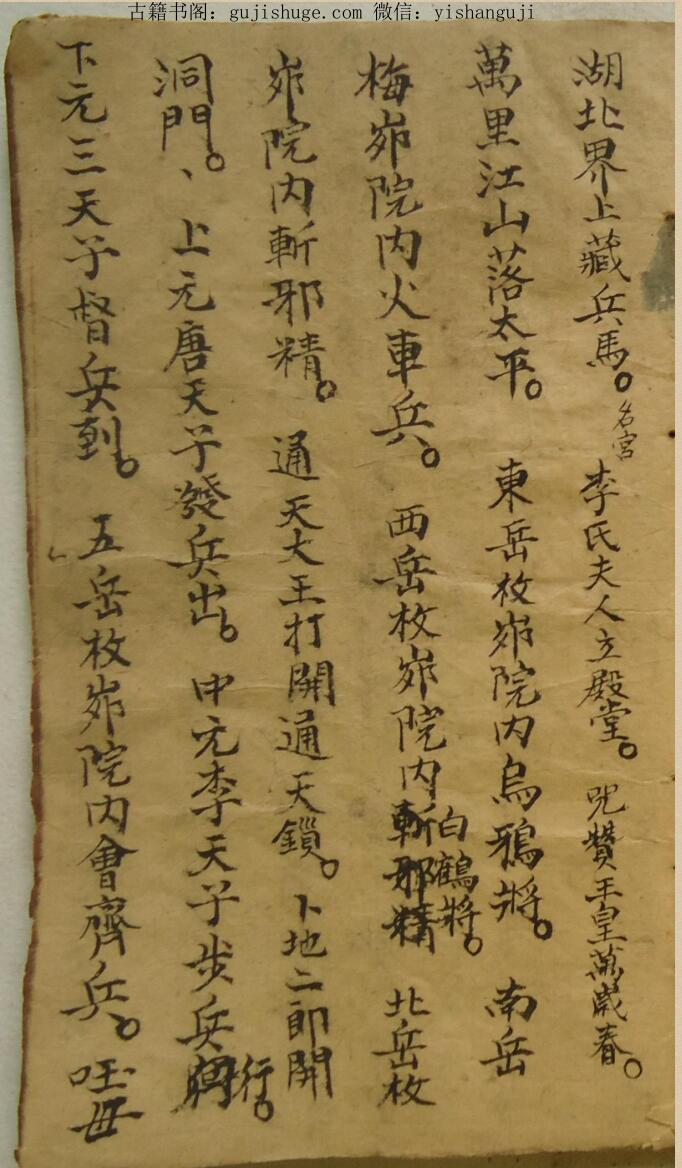 古籍书阁：gujishuge.com 微信：yishanguji
湖北界上藏兵馬。名宮李氏夫人立殿堂。咒贊王皇萬歲春。
萬里江山落太平。東岳枚峁院内烏鴉將。南岳
梅峁院内火車兵。西岳枚峁院内斬邪精白鶴將。北岳枚
峁院内斬邪精。通天大王打開通天鎖。卜地二郎開
洞門。、上元唐天子發兵出。中元李天子步兵行。
下元三天子督兵到。五岳枚峁院内會齊兵。